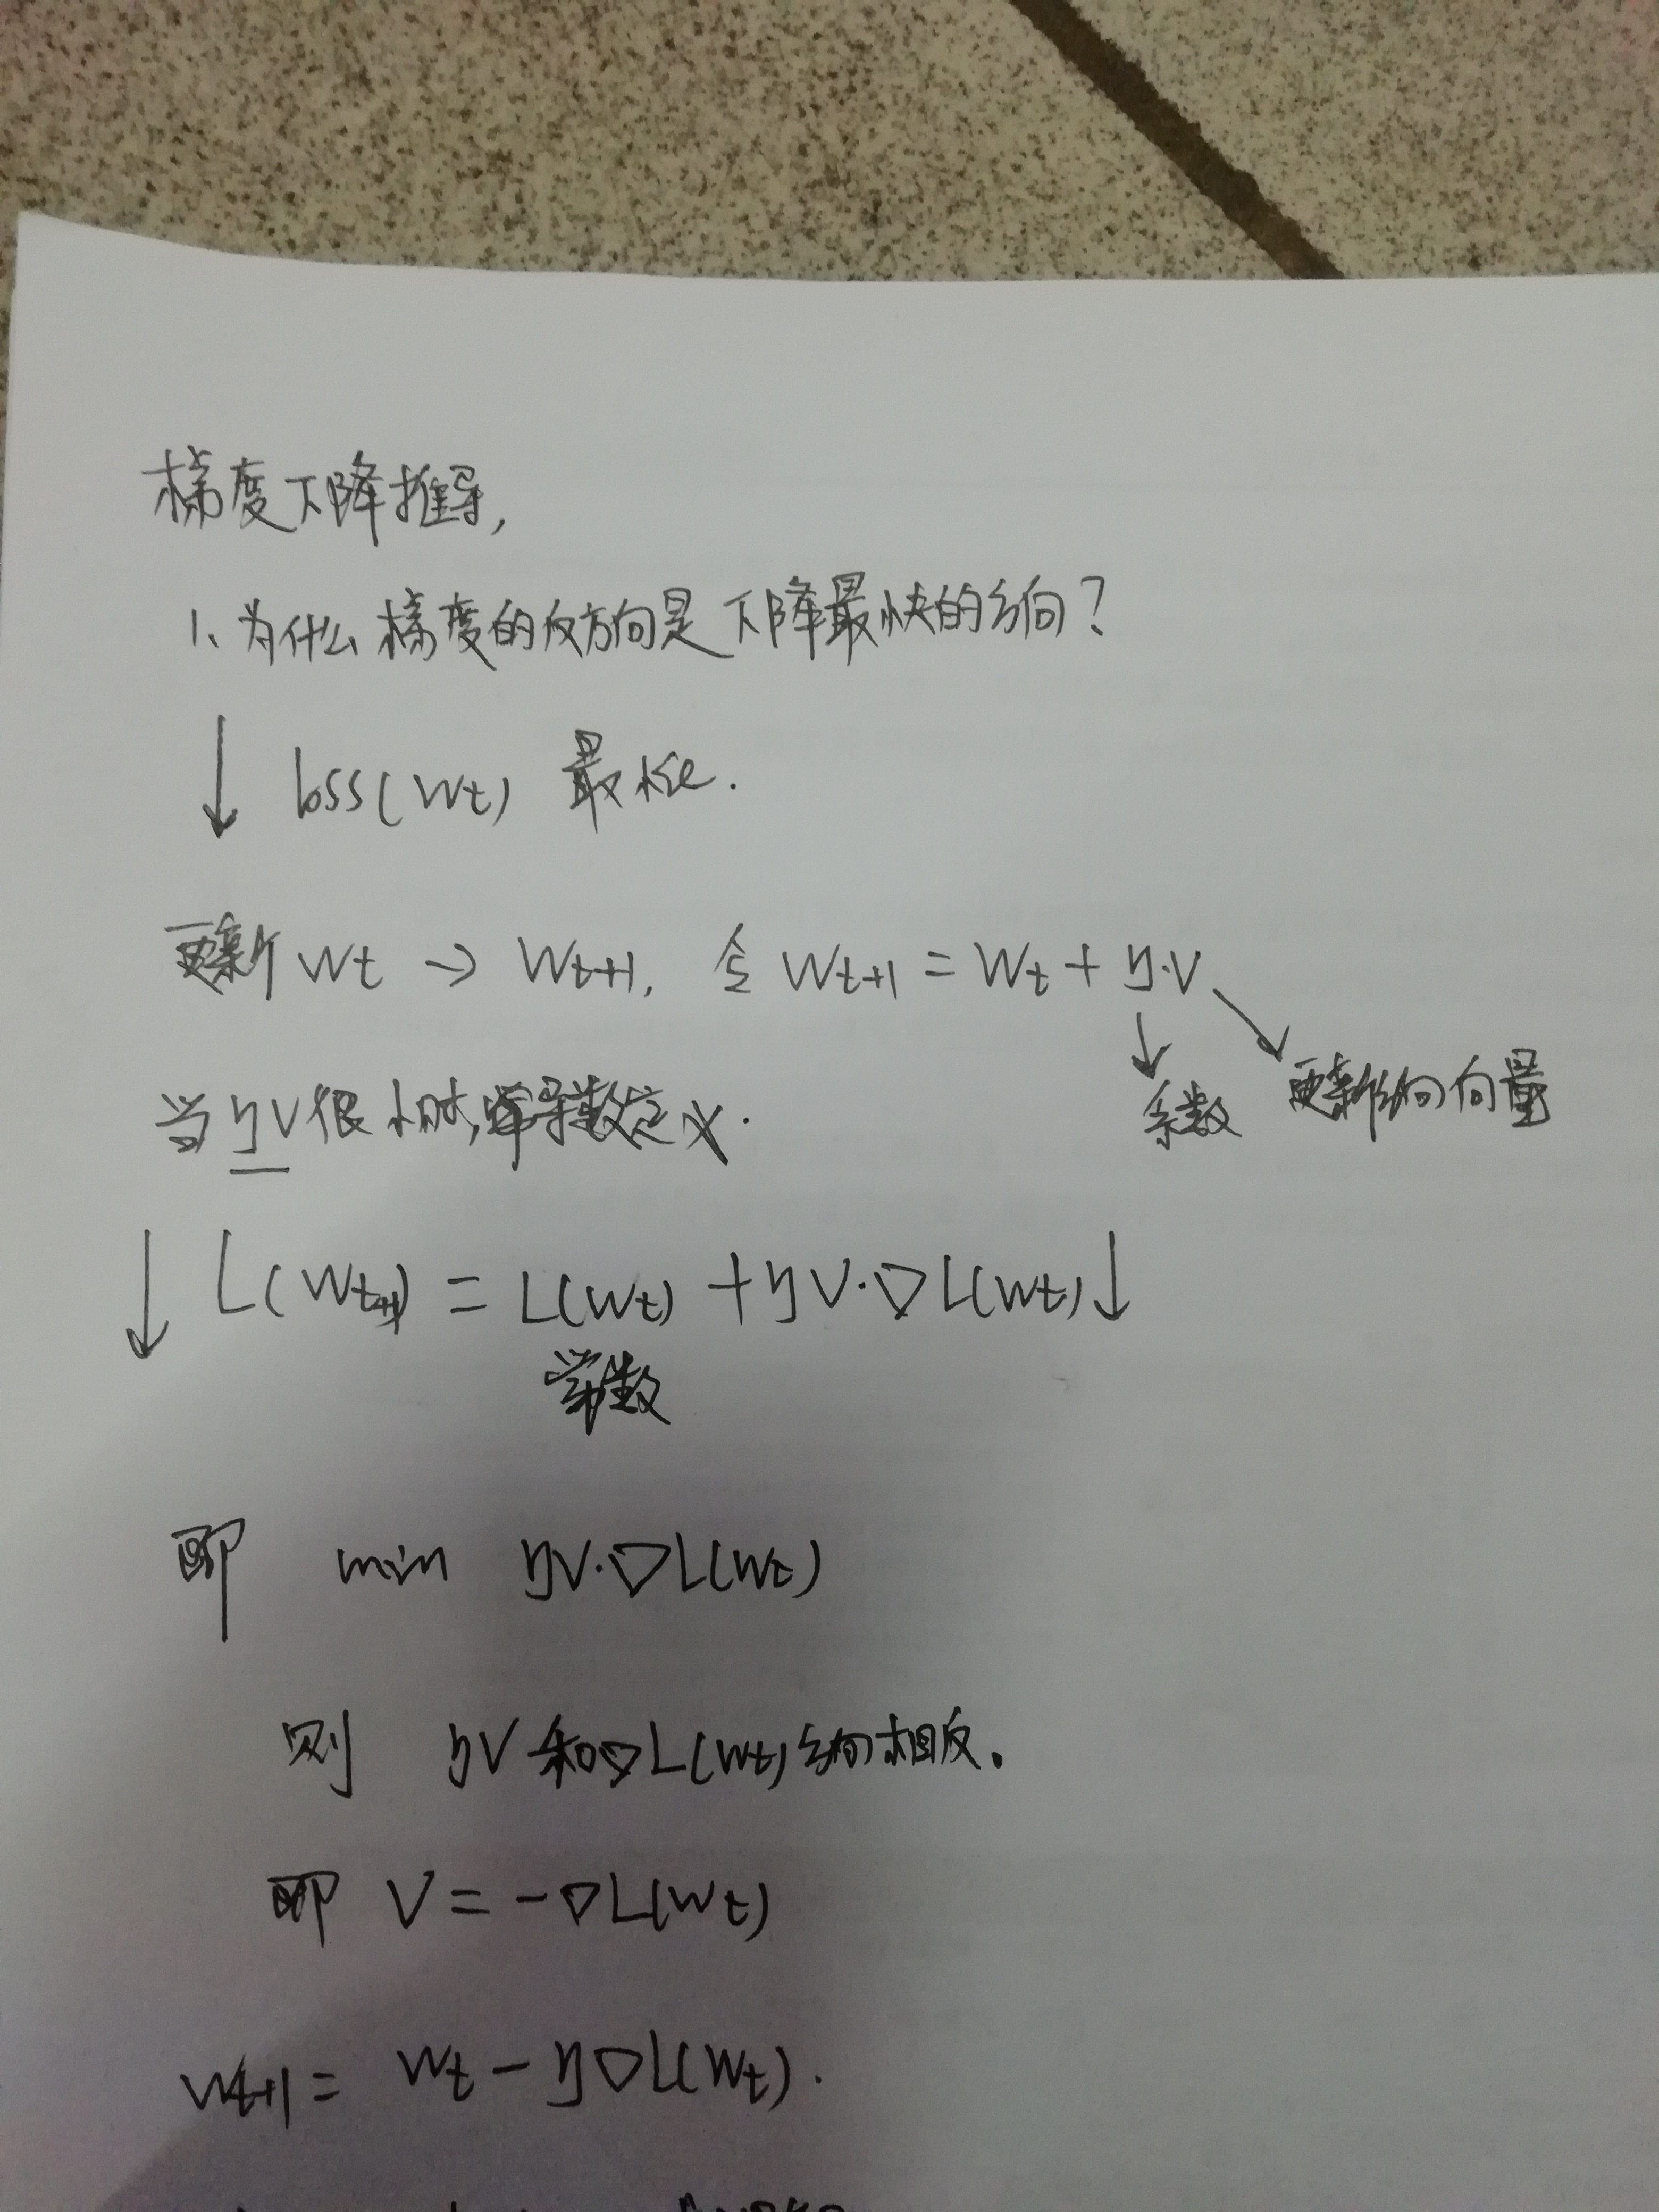 梯度下降推导,
1、为什么梯度的反方向是下降最快的方向?
↓ loss(Wt) 最低.
更新 Wt → Wt+1, 令 Wt+1 = Wt + η·V
系数 更新的向量
当 ηV 很小时, 导数定义.
↓ L(Wt+1) = L(Wt) + ηV·∇L(Wt)↓
常数
即 min ηV·∇L(Wt)
则 ηV和∇L(Wt)方向相反。
即 V = -∇L(Wt)
Wt+1 = Wt - η∇L(Wt).